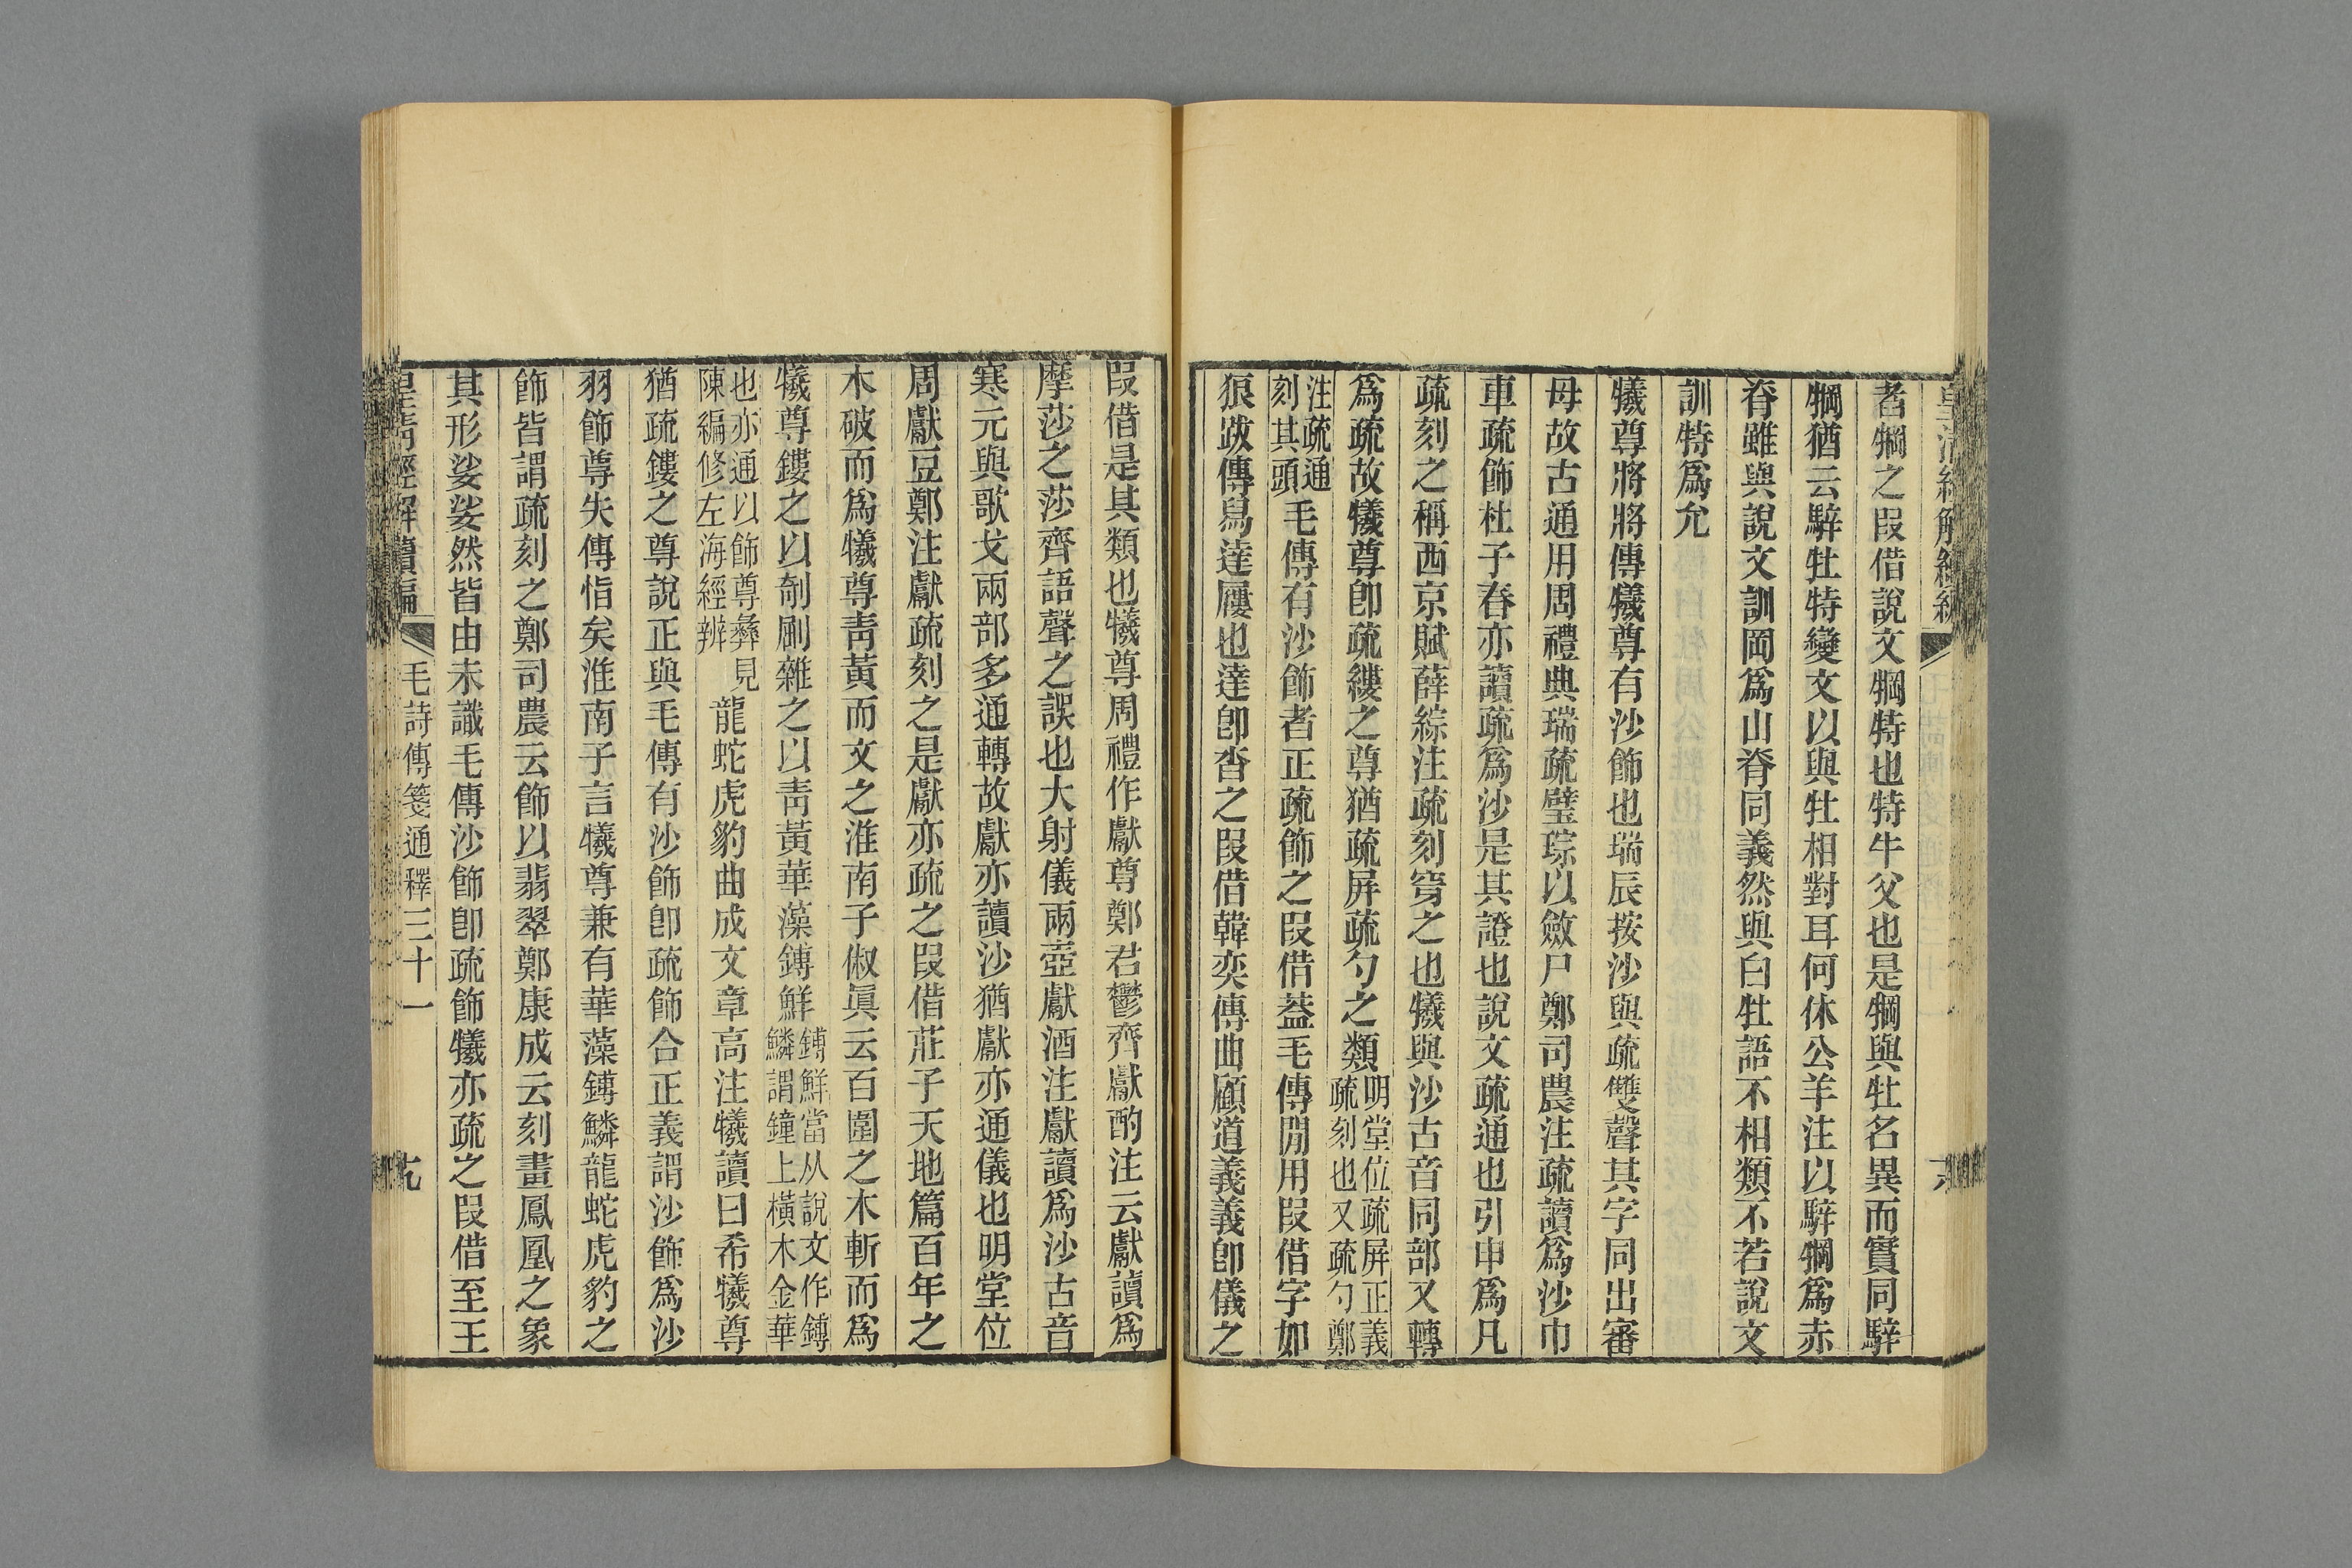 者犅之叚借說文犅特也特牛父也是犅與牡名異而實同騂
犅猶云騂牡特變文以與牡相對耳何休公羊注以騂犅爲赤
脊雖與說文訓岡爲山脊同義然與白牡語不相類不若說文
訓特爲允
犧尊將將傳犧尊有沙飾也瑞辰按沙與疏雙聲其字同出審
母故古通用周禮典瑞疏璧琮以斂尸鄭司農注疏讀爲沙巾
車疏飾杜子春亦讀疏爲沙是其證也說文疏通也引申爲凡
疏刻之稱西京賦薛綜注疏刻穿之也犧與沙古音同部又轉
爲疏故犧尊卽疏縷之尊猶疏屏疏勺之類明堂位疏屏正義疏刻也又疏勺鄭
注疏通刻其頭毛傳有沙飾者正疏飾之叚借葢毛傳閒用叚借字如
狼跋傳舄達屨也達卽沓之叚借韓奕傳曲顧道義義卽儀之
叚借是其類也犧尊周禮作獻尊鄭君鬱齊獻酌注云獻讀爲
摩莎之莎齊語聲之誤也大射儀兩壺獻酒注獻讀爲沙古音
寒元與歌戈兩部多通轉故獻亦讀沙猶獻亦通儀也明堂位
周獻豆鄭注獻疏刻之是獻亦疏之叚借莊子天地篇百年之
木破而爲犧尊靑黃而文之淮南子俶眞云百圍之木斬而爲
犧尊鏤之以剞劂雜之以靑黃華藻鎛鮮鎛鮮當从說文作鎛鱗謂鐘上橫木金華
也亦通以飾尊彝見陳編修左海經辨龍蛇虎豹曲成文章高注犧讀曰希犧尊
猶疏鏤之尊說正與毛傳有沙飾卽疏飾合正義謂沙飾爲沙
羽飾尊失傳恉矣淮南子言犧尊兼有華藻鎛鱗龍蛇虎豹之
飾皆謂疏刻之鄭司農云飾以翡翠鄭康成云刻畫鳳凰之象
其形娑娑然皆由未識毛傳沙飾卽疏飾犧亦疏之叚借至王
皇清經解續編 毛詩傳箋通釋三十一